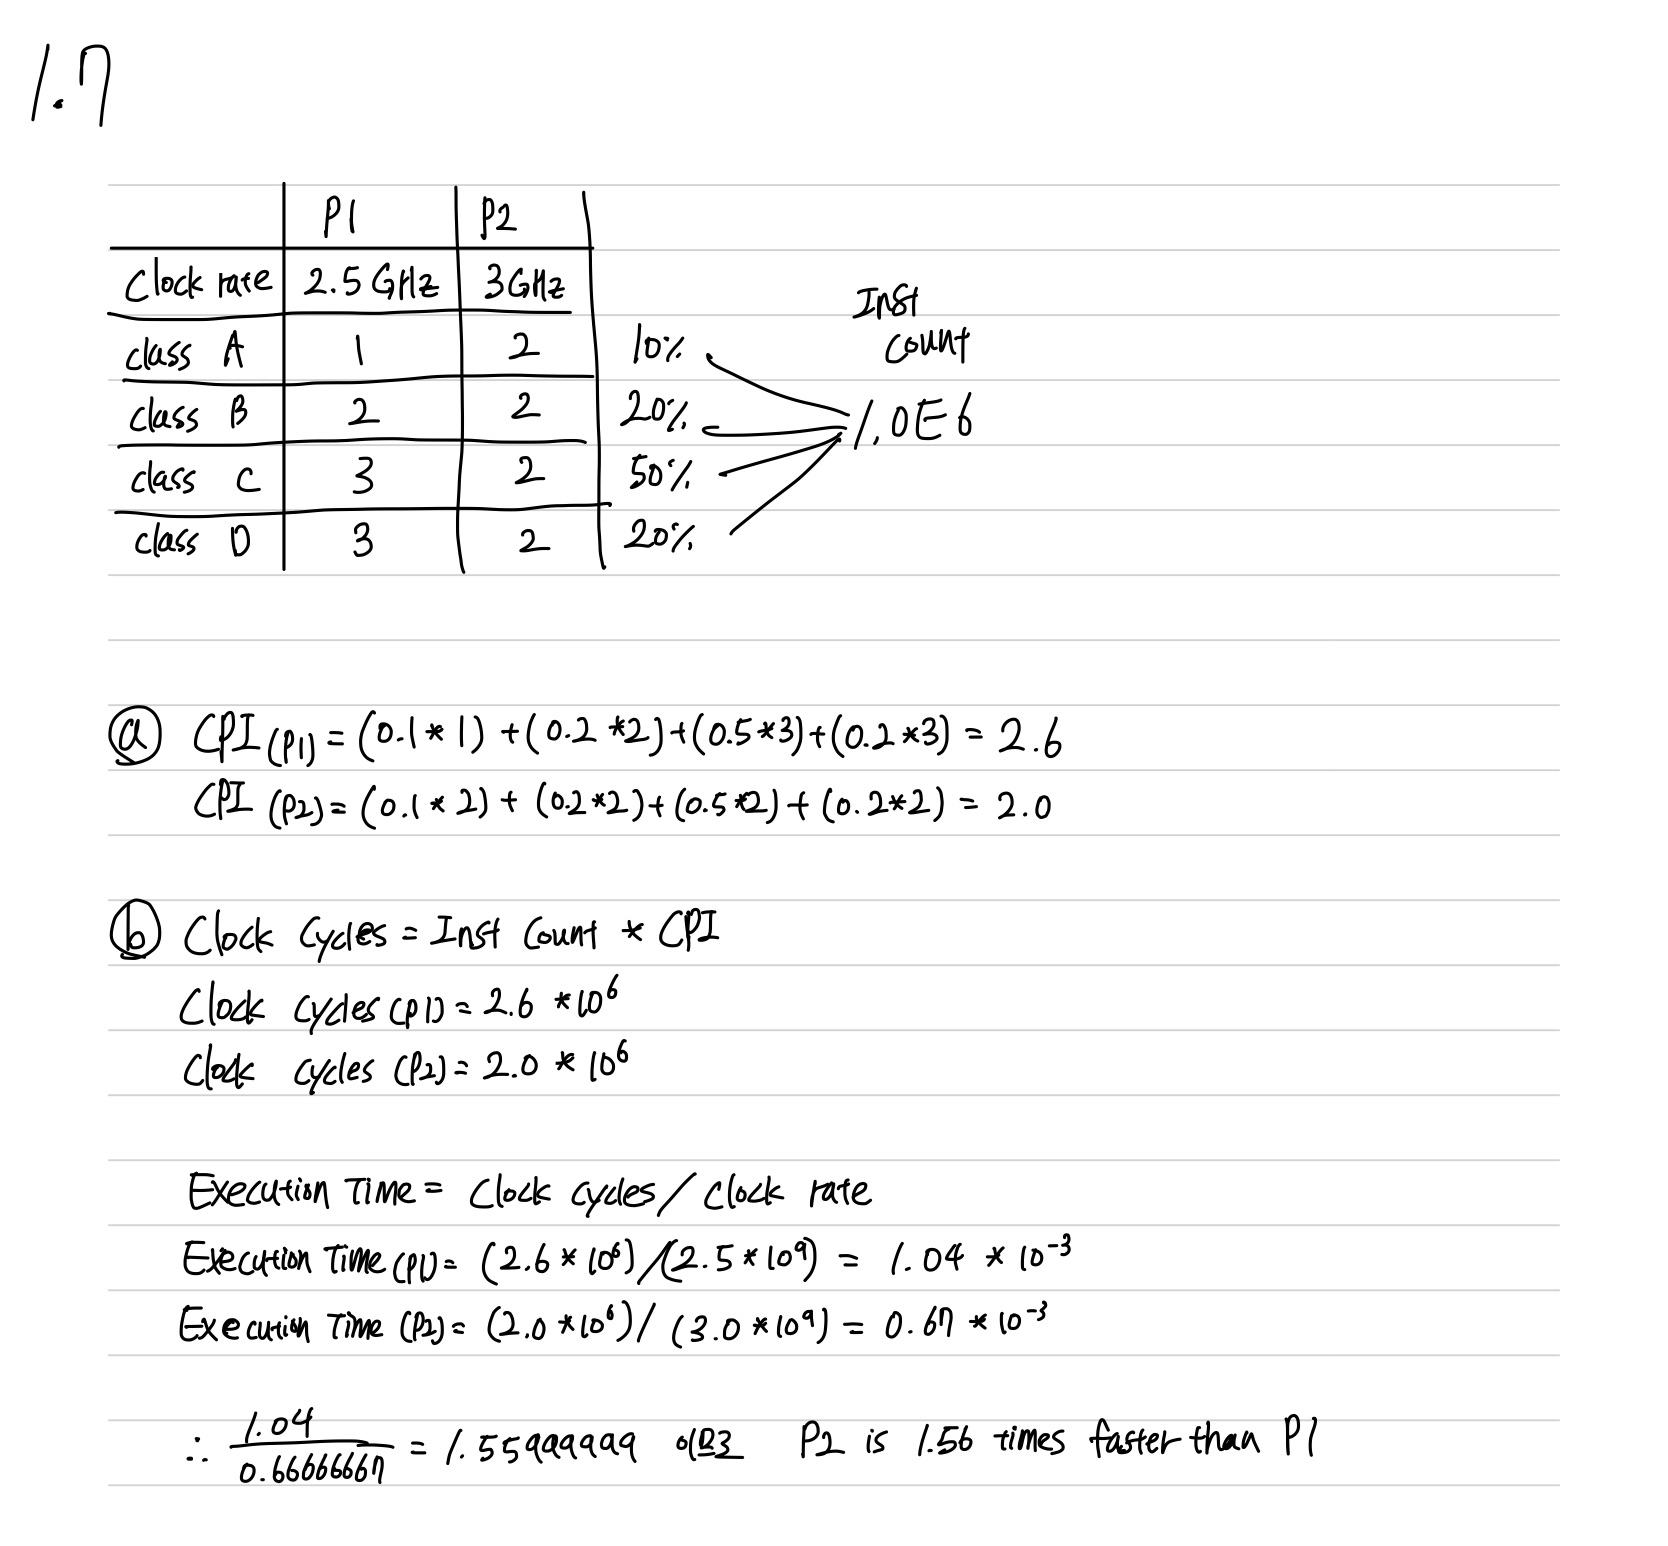 1.7
P1 P2
Clock rate 2.5 GHz 3GHz
Inst
count
class A 1 2 10%
class B 2 2 20% 1.0E6
class C 3 2 50%
class D 3 2 20%
ⓐ CPI (P1) = (0.1 * 1) + (0.2 *2)+(0.5*3)+(0.2*3) = 2.6
CPI (P2) = (0.1 * 2) + (0.2*2)+(0.5*2)+(0.2*2) = 2.0
ⓑ Clock Cycles = Inst Count * CPI
Clock cycles (P1) = 2.6 *10⁶
Clock cycles (P2) = 2.0 * 10⁶
Execution Time = Clock cycles / Clock rate
Execution Time (P1) = (2.6 * 10⁶)/(2.5*10⁹) = 1.04 * 10⁻³
Execution Time (P2) = (2.0 *10⁶)/(3.0 *10⁹) = 0.67 * 10⁻³
∴ 1.04 / 0.66666667 = 1.55999999 이므로 P2 is 1.56 times faster than P1